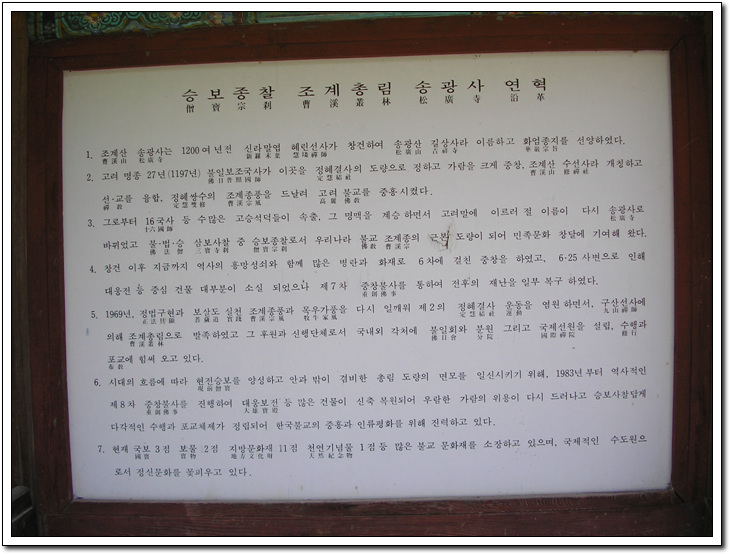 승보종찰 조계총림 송광사 연혁
僧寶宗刹 曹溪叢林 松廣寺 沿革
1. 조계산 송광사는 1200여년전 신라말엽 혜린선사가 창건하여 송광산 길상사라 이름하고 화엄종지를 선양하였다.
曹溪山 松廣寺 新羅末葉 慧璘禪師 松廣山 吉祥寺 華嚴宗旨
2. 고려 명종 27년(1197년) 불일보조국사가 이곳을 정혜결사의 도량으로 정하고 가람을 크게 중창, 조계산 수선사라 개칭하고
佛日普照國師 定慧結社 曹溪山 修禪社
선·교를 융합, 정혜쌍수의 조계종풍을 드날려 고려 불교를 중흥시켰다.
禪敎 定慧雙修 曹溪宗風 高麗 佛敎
3. 그로부터 16국사 등 수많은 고승석덕들이 속출, 그 명맥을 계승하면서 고려말에 이르러 절 이름이 다시 송광사로
十六國師 松廣寺
바뀌었고 불·법·승 삼보사찰 중 승보종찰로서 우리나라 불교 조계종의 근본 도량이 되어 민족문화 창달에 기여해 왔다.
佛 法 僧 三寶寺刹 僧寶宗刹 佛敎 曹溪宗
4. 창건 이후 지금까지 역사의 흥망성쇠와 함께 많은 병란과 화재로 6차에 걸친 중창을 하였고, 6·25 사변으로 인해
대웅전 등 중심 건물 대부분이 소실 되었으나 제7차 중창불사를 통하여 전후의 재난을 일부 복구 하였다.
重創佛事
5. 1969년, 정법구현과 보살도 실천 조계종풍과 목우가풍을 다시 일깨워 제2의 정혜결사 운동을 염원하면서, 구산선사에
正法具顯 菩薩道 實踐 曹溪宗風 牧牛家風 定慧結社 運動 九山禪師
의해 조계총림으로 발족하였고 그 후원과 신행단체로서 국내외 각처에 불일회와 분원 그리고 국제선원을 설립, 수행과
曹溪叢林 佛日會 分院 國際禪院 修行
포교에 힘써 오고 있다.
布敎
6. 시대의 흐름에 따라 현전승보를 양성하고 안과 밖이 겸비한 총림 도량의 면모를 일신시키기 위해, 1983년부터 역사적인
現前僧寶
제8차 중창불사를 진행하여 대웅보전 등 많은 건물이 신축 복원되어 우람한 가람의 위용이 다시 드러나고 승보사찰답게
重創佛事 大雄寶殿
다각적인 수행과 포교체제가 정립되어 한국불교의 중흥과 인류평화를 위해 진력하고 있다.
7. 현재 국보 3점 보물 2점 지방문화재 11점 천연기념물 1점 등 많은 불교 문화재를 소장하고 있으며, 국제적인 수도원으
國寶 寶物 地方文化財 天然紀念物
로서 정신문화를 꽃피우고 있다.